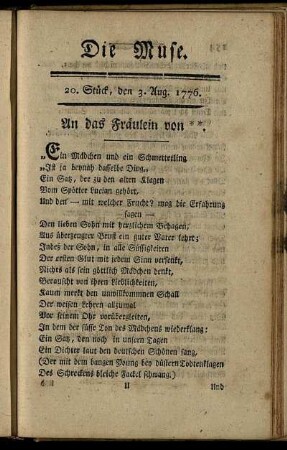 Die Muse.
20. Stück, den 3. Aug. 1776.
An das Fräulein von **.
„Ein Mädchen und ein Schmetterling
„Ist ja beynah dasselbe Ding„
Ein Satz, der zu den alten Klagen
Vom Spötter Lucian gehört,
Und den — mit welcher Frucht? mag die Erfahrung
sagen —
Den lieben Sohn mit herzlichem Behagen,
Aus überzeugter Brust ein guter Vater lehrt;
Indes der Sohn, in alle Süßigkeiten
Der ersten Glut mit jedem Sinn versenkt,
Nichts als sein göttlich Mädchen denkt,
Berauscht von ihren Lieblichkeiten,
Kaum merkt den unwillkommnen Schall
Der weisen Lehren allzumal
Vor seinem Ohr vorübergleiten,
In dem der süsse Ton des Mädchens wiederklang:
Ein Satz, den noch in unsern Tagen
Ein Dichter laut den deutschen Schönen sang,
(Der mit dem bangen Young bey düstern Todtenklagen
Des Schreckens bleiche Fackel schwang.)
U
Und